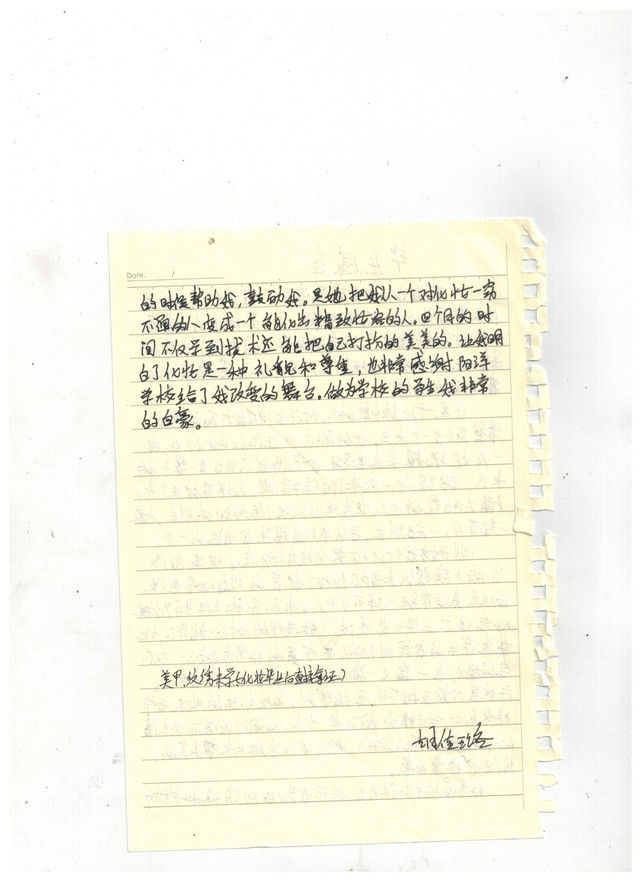 Date. /
的时候帮助我，鼓励我。是她把我从一个对化妆一窍
不通的人变成一个能化出精致妆容的人。四个月的时
间不仅学到技术还能把自己打扮的美美的。让我明
白了化妆是一种礼貌和尊重，也非常感谢阳洋
学校给了我改变的舞台。做为学校的学生我非常
的自豪。
美甲、纹绣未学(化妆毕业后直接拿证)